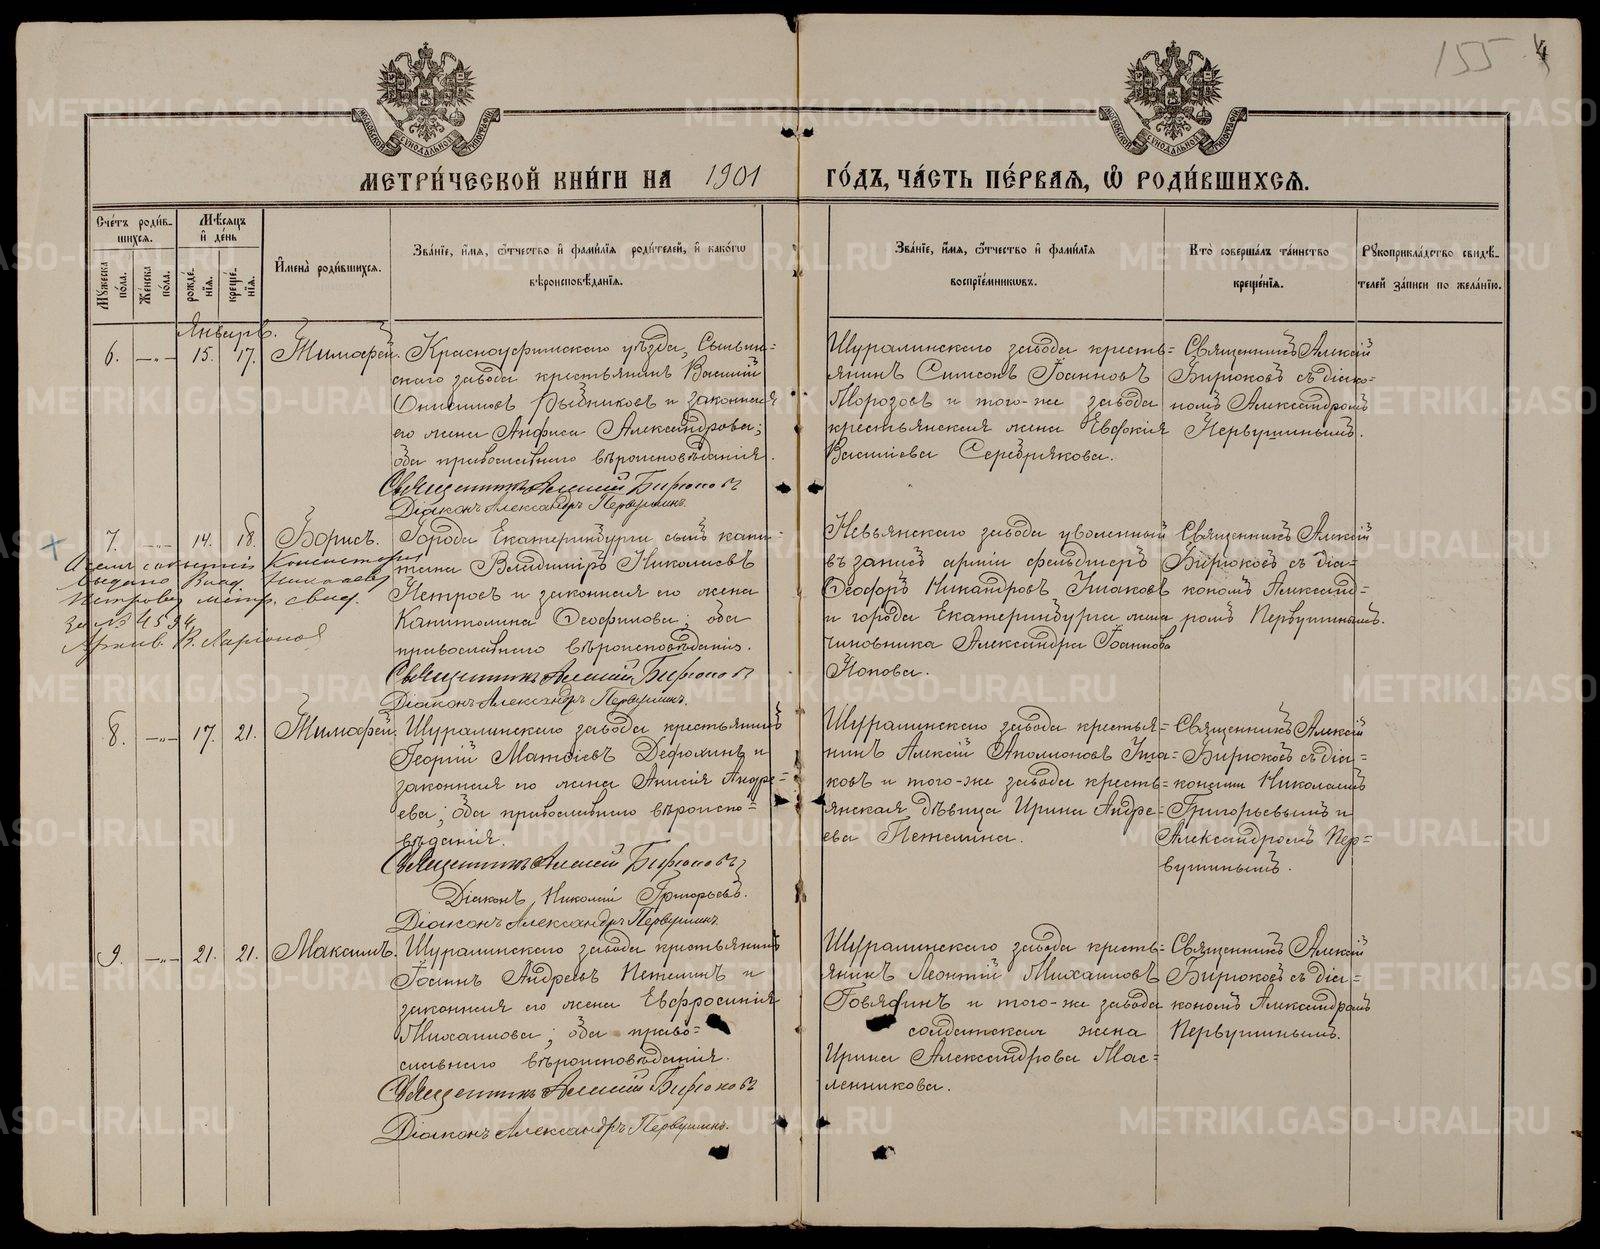 155
МЕТРИ́ЧЕСКОЙ КНИ́ГИ НА 1901 ГО́ДЪ, ЧА́СТЬ ПЕ́РВАѦ, Ѡ҆ РОДИ́ВШИХСѦ.
Сче́тъ роди́в-
шихся.
Мꙋ́жеска по́ла.
Же́нска по́ла.
Мѣ́сяцъ и҆ де́нь
рожде́нїѧ.
креще́нїѧ.
И҆мена̀ роди́вшихся.
Зва́нїе, и҆́мя, ѻ҆́тчество и҆ фами́лїѧ роди́телей, и҆ како́гѡ
вѣроисповѣ́данїѧ.
Зва́нїе, и҆́мя, ѻ҆́тчество и҆ фами́лїѧ
воспрїе́мникωвъ.
Кто̀ соверша́лъ та́инство
креще́нїѧ.
Рꙋкоприкла́дство свидѣ́-
телей за́писи по жела́нїю.
Январь.
6. —„— 15. 17. Тимофей.
Красноуфимскаго уѣзда, Сылвин=
скаго завода крестьянинъ Василій
Онисимовъ Рыбниковъ и законная
его жена Анфиса Александрова;
оба православнаго вѣроисповѣданія.
Священникъ Алексій Бирюковъ
Діаконъ Александръ Первушинъ.
Шуралинскаго завода кресть=
янинъ Симеонъ Іоанновъ
Морозовъ и того-же завода
крестьянская жена Евфокія
Васильева Серебрякова.
Священникъ Алексій
Бирюковъ съ діако=
номъ Александромъ
Первушинымъ.
7. —„— 14. 18. Борисъ.
Города Екатеринбурга сынъ капи=
тана Владиміръ Николаевъ
Петровъ и законная его жена
Капитолина Ѳеофилова; оба
православнаго вѣроисповѣданія.
Священникъ Алексій Бирюковъ
Діаконъ Александръ Первушинъ.
Консисторіи
выдано Влад. Николаев.
Петрову метр. свид.
за № 4594
Архив. В. Ларіонов
Невьянскаго завода уволенный
въ запасъ арміи фельдшеръ
Ѳеодоръ Никандровъ Ушаковъ
и города Екатеринбурга жена
чиновника Александра Іоаннова
Попова.
Священникъ Алексій
Бирюковъ съ діа=
кономъ Александ=
ромъ Первушинымъ.
8. —„— 17. 21. Тимофей.
Шуралинскаго завода крестьянинъ
Георгій Матѳіевъ Дедюхинъ и
законная его жена Анисія Андре=
ева; оба православнаго вѣроиспо=
вѣданія.
Священникъ Алексій Бирюковъ
Діаконъ Николай Григорьевъ.
Діаконъ Александръ Первушинъ.
Шуралинскаго завода крестья=
нинъ Алексій Аполлоновъ Уша=
ковъ и того-же завода кресть=
янская дѣвица Ирина Андре=
ева Петелина.
Священникъ Алексій
Бирюковъ съ діа=
конами Николаемъ
Григорьевымъ и
Александромъ Пер=
вушинымъ.
9. —„— 21. 21. Максимъ.
Шуралинскаго завода крестьянинъ
Іоаннъ Андреевъ Петелинъ и
законная его жена Евфросинія
Михаилова; оба право=
славнаго вѣроисповѣданія.
Священникъ Алексій Бирюковъ
Діаконъ Александръ Первушинъ.
Шуралинскаго завода кресть=
янинъ Леонтій Михаиловъ
Говядинъ и того-же завода
солдатская жена
Ирина Александрова Мас=
ленникова.
Священникъ Алексій
Бирюковъ съ діа=
кономъ Александромъ
Первушинымъ.
METRIKI.GASO-URAL.RU